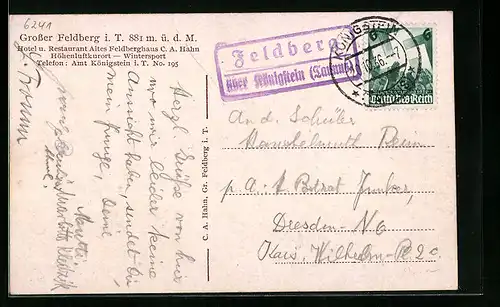 6241
Großer Feldberg i. T. 881 m. ü. d. M.
Hotel u. Restaurant Altes Feldberghaus C. A. Hahn
Höhenluftkurort — Wintersport
Telefon: Amt Königstein i. T. No. 195
Feldberg
über Königstein (Taunus)
KÖNIGSTEIN
6
Deutsches Reich
C. A. Hahn, Gr. Feldberg i. T.
Herzl. Grüße von hier
wo wir leider keine
Aussicht haben sendet Dir
mein Junge, Deine
Mutti
An d. Schüler
Hanshelmuth
p. A.
Dresden-N6
Kais. Wilhelm-Pl. 2c.